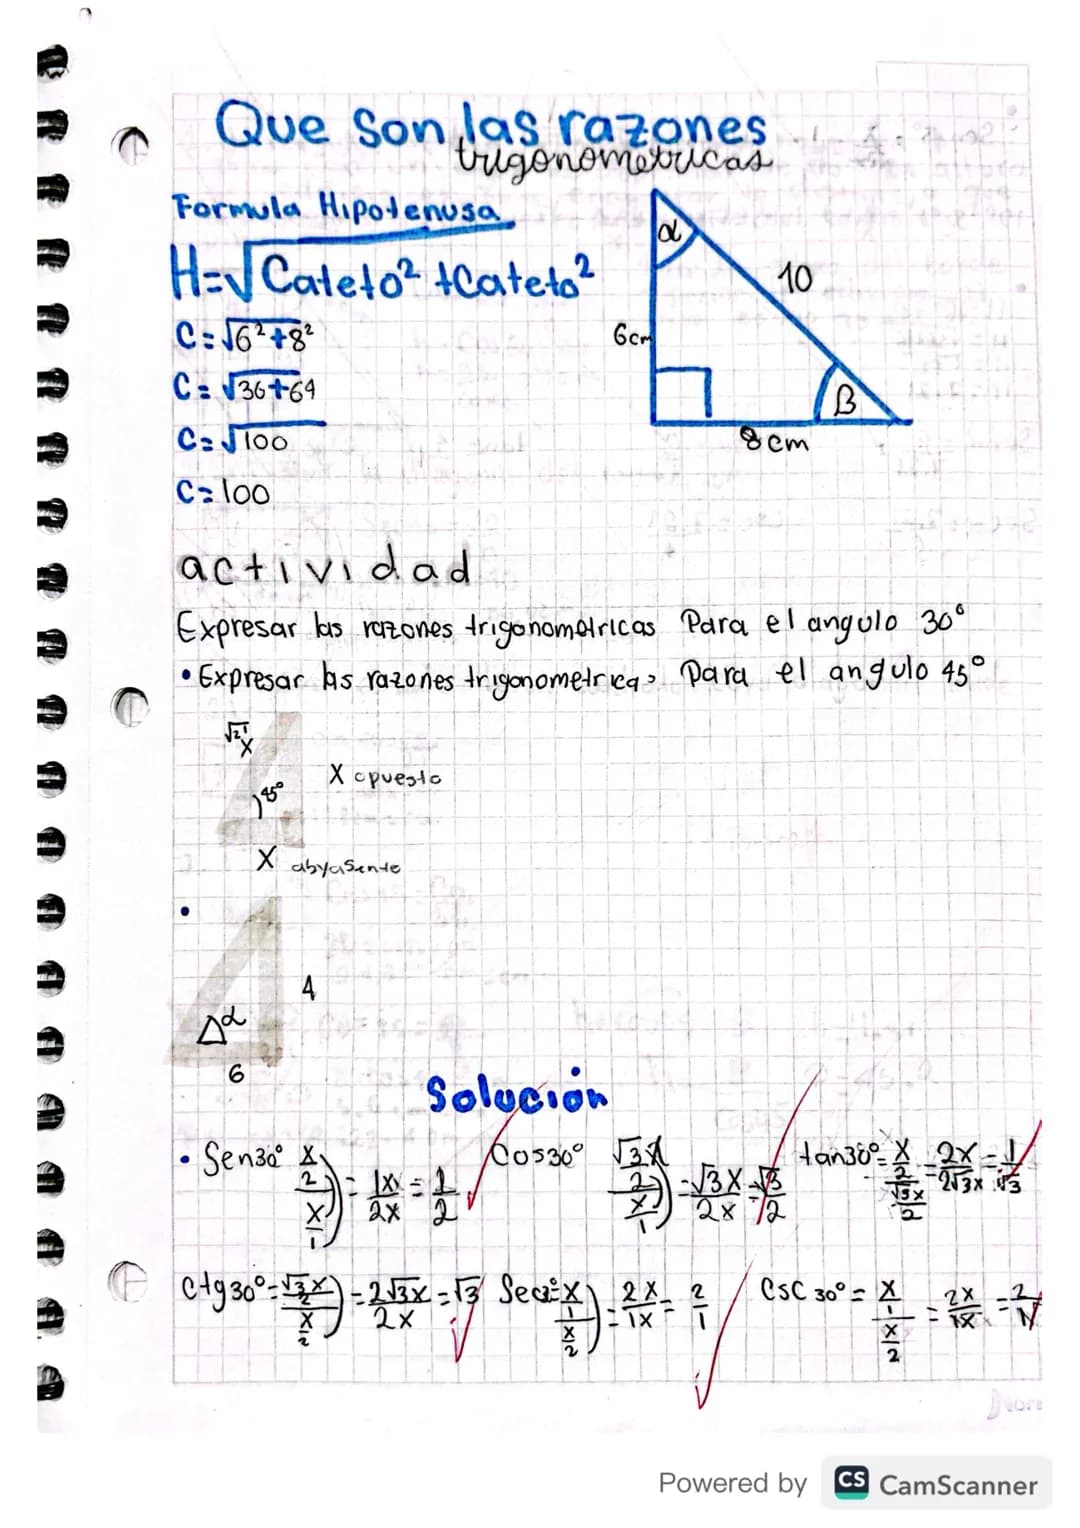 Que son las razones
trigonometricas
Formula Hipotenusa
H=√Cateto² +Cateto²
C=√6²+8²
C=√36+64
C=√100
C=100
α
10
6cm
β
8cm
actividad
Expresar las razones trigonometricas Para el angulo 30°
• Expresar las razones trigonometricas Para el angulo 45°
X
45°
X opuesto
X abyasente
•
4
α
6
Solución
• Sen30° (X/2)/(X/1) = 1X/2X = 1/2
Cos30° (√3X/2)/(X/1) = √3X/2X = √3/2
tan30°= (X/2)/(√3X/2) = 2X/2√3X = 1/√3
Ctg30°= (√3X/2)/(X/2) = 2√3X/2X = √3
(X/1)/(X/2) = 2X/1X = 2/1
CSC 30° = (X/1)/(X/2) = 2X/1X = 2/1
Powered by CS CamScanner